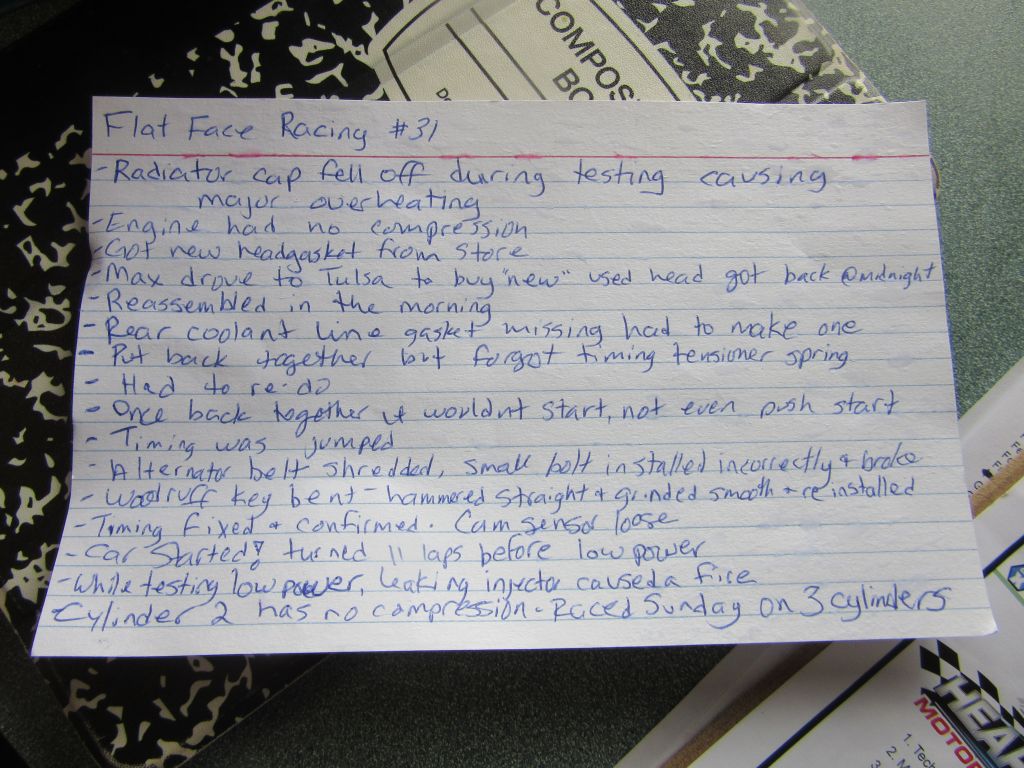 COMPOS
BO
Flat Face Racing #31
- Radiator cap fell off during testing causing
major overheating
- Engine had no compression
- Got new headgasket from store
- Max drove to Tulsa to buy "new" used head got back @midnight
- Reassembled in the morning
- Rear coolant line gasket missing had to make one
- Put back together but forgot timing tensioner spring
- Had to re-do
- Once back together it wouldnt start, not even push start
- Timing was jumped
- Alternator belt shredded, small bolt installed incorrectly & broke
- Woodruff key bent - hammered straight & grinded smooth & reinstalled
- Timing fixed & confirmed. Cam sensor loose
- Car started! turned 11 laps before low power
- While testing low power, leaking injector caused a fire
Cylinder 2 has no compression - Raced Sunday on 3 cylinders
HEA
MOTOR
1. Tech
2. M
3.